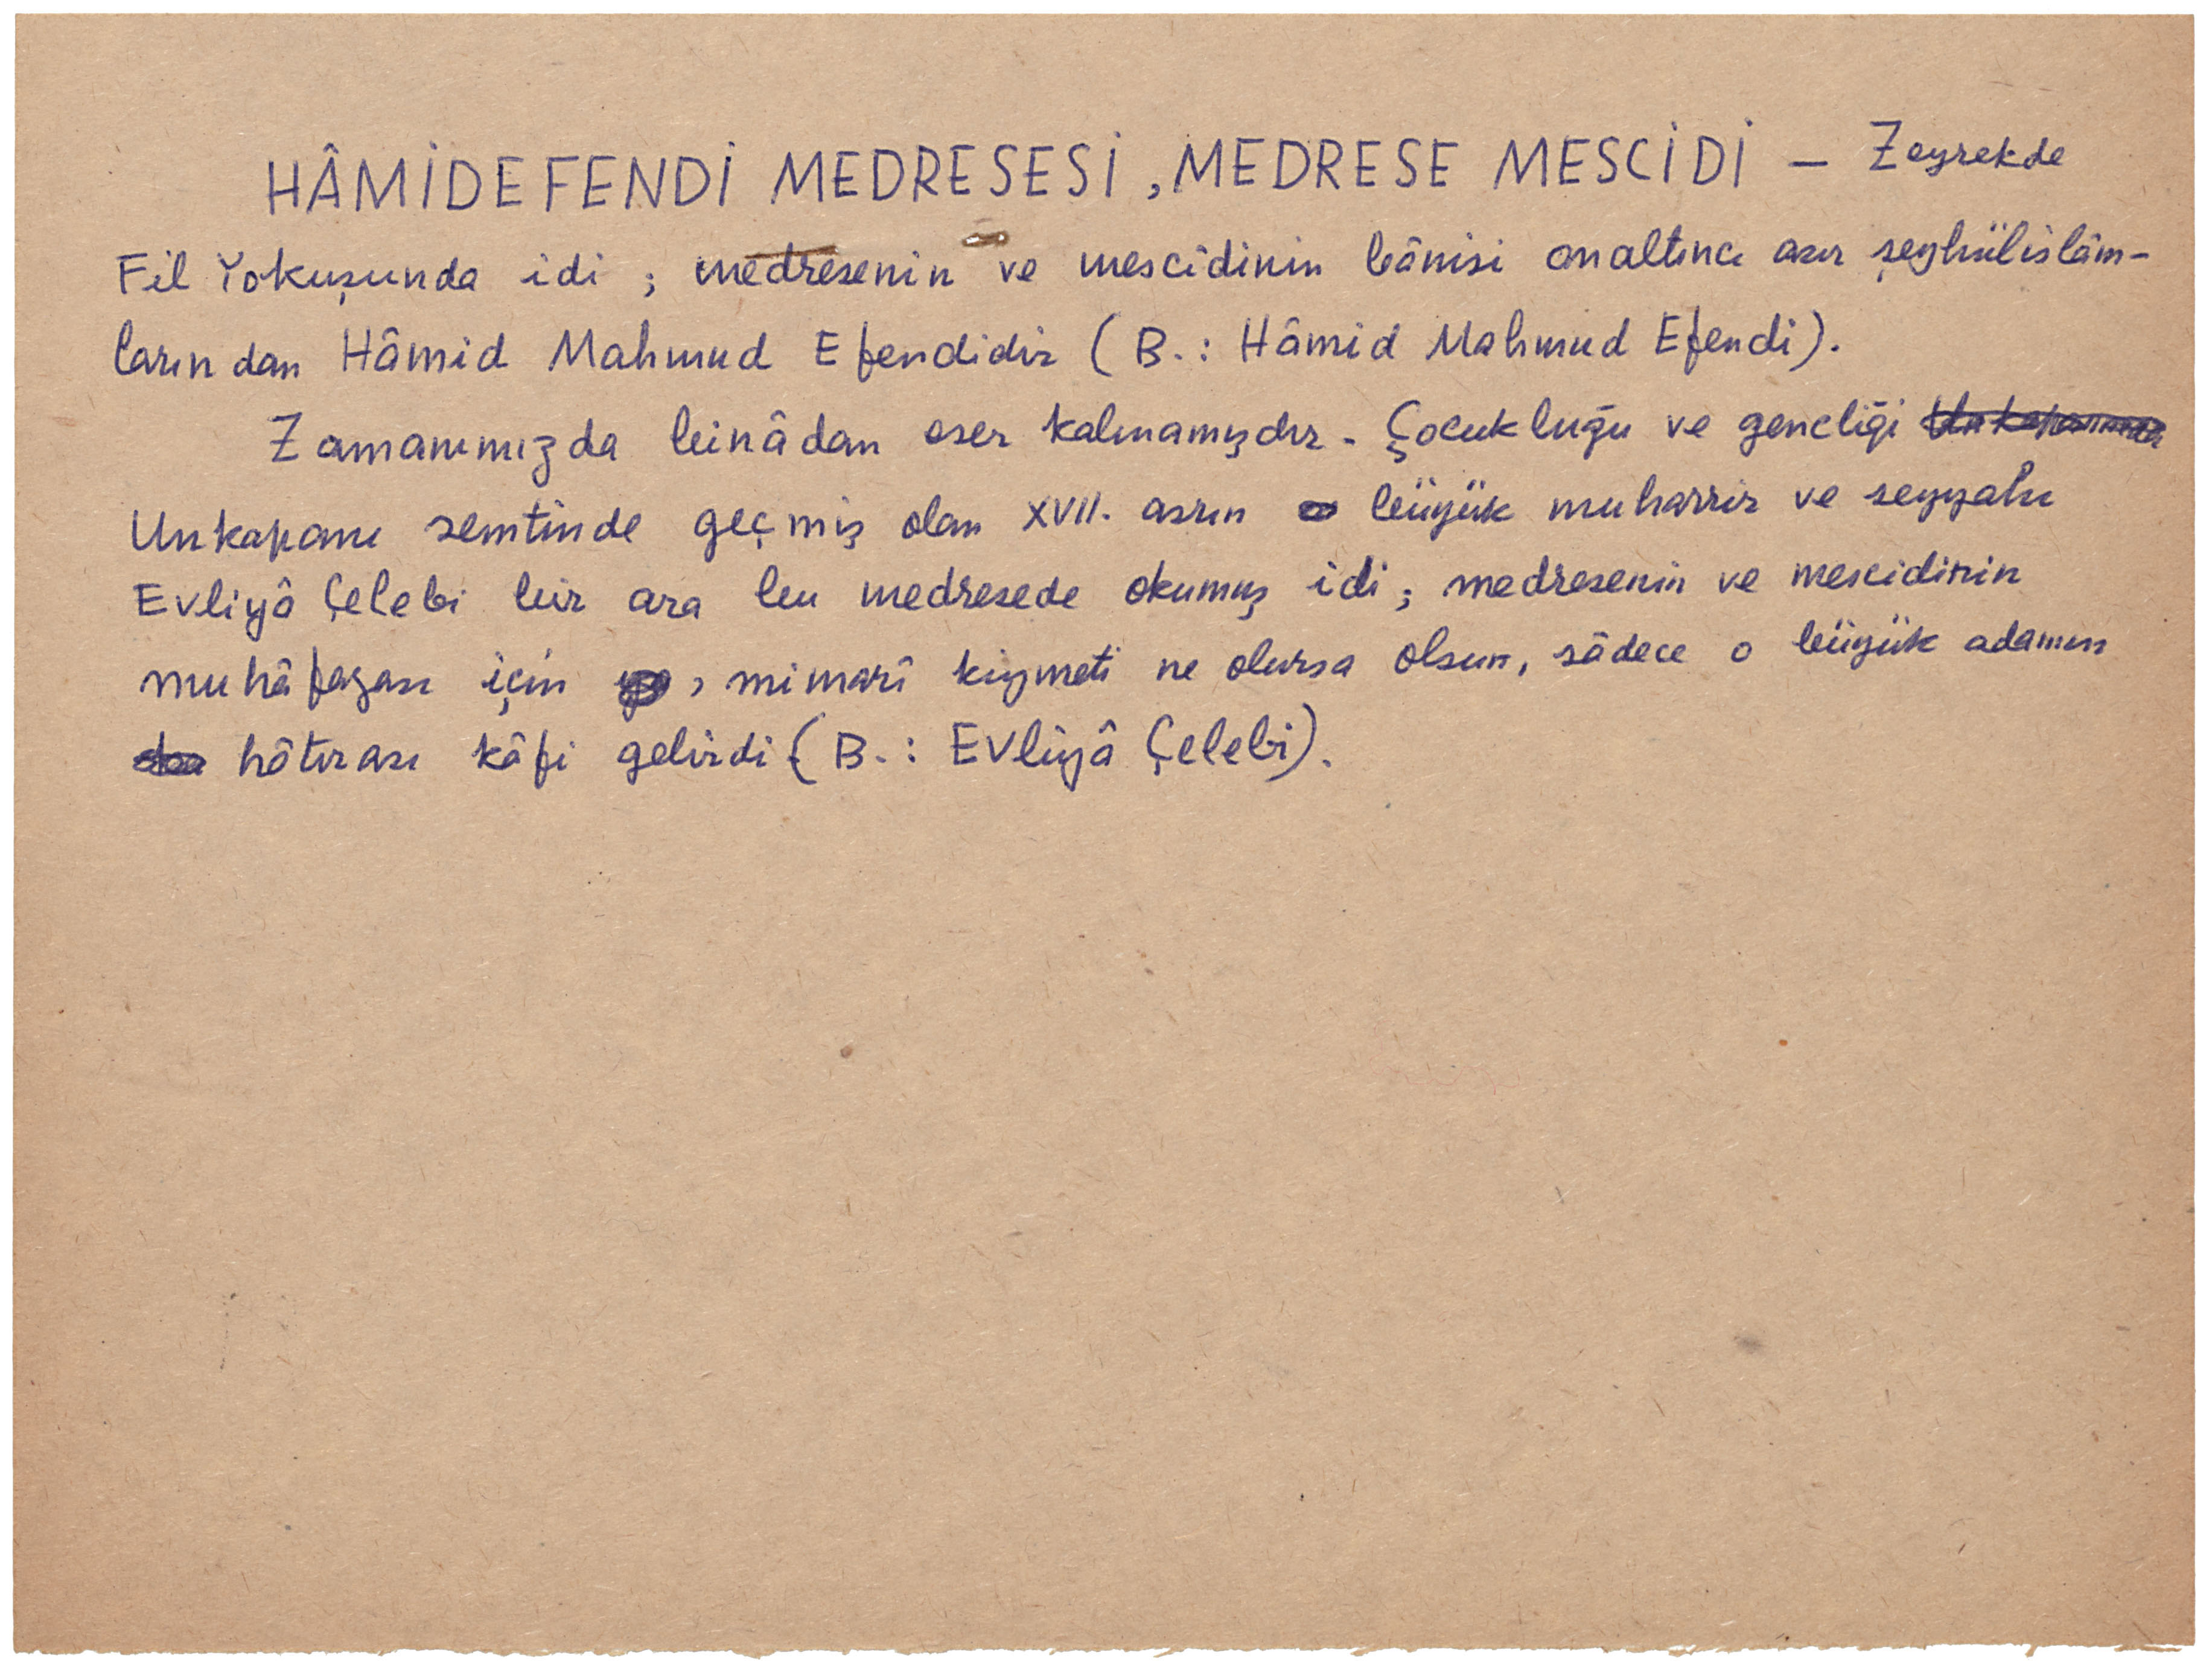 HÂMİDEFENDİ MEDRESESİ, MEDRESE MESCİDİ — Zeyrekde
Fil Yokuşunda idi ; medresenin ve mescidinin bânisi onaltıncı asır şeyhülislâm-
larından Hâmid Mahmud Efendidir (B.: Hâmid Mahmud Efendi).
Zamanımızda binâdan eser kalmamışdır. Çocukluğu ve gencliği Unkapanında
Unkapanı semtinde geçmiş olan XVII. asrın büyük muharrir ve seyyahı
Evliyâ Çelebi bir ara bu medresede okumuş idi ; medresenin ve mescidinin
muhâfazası için , mimarî kıymeti ne olursa olsun, sâdece o büyük adamın
hâtırası kâfi gelirdi (B.: Evliyâ Çelebi).